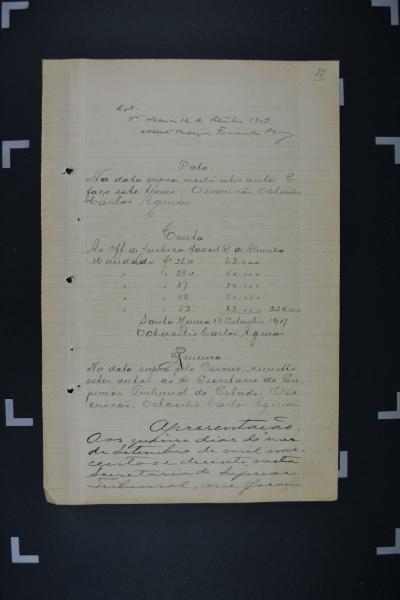 Data
Na data supra recebi estes autos. E
faço este termo. O escrivão, Octacilio
Carlos Aguiar
Conta
Ao Off. de Justiça Manoel R. de Almeida
Mandado fs 26v 62.000
" " 33v 50.000
" " 37 10.000
" " 52 50.000
" " 62 62.000 234.000
Santa Maria 13 Setembro 1917
Octacilio Carlos Aguiar
Remessa
Na data supra, pelo Correio, remetto
estes autos ao Sr Secretario do Su-
perior Tribunal do Estado. O es-
crivão, Octacilio Carlos Aguiar
Apresentação
Aos quinze dias do mez
de Setembro de mil nove
centos e dezesete nesta
Secretaria do Superior
Tribunal, me foram